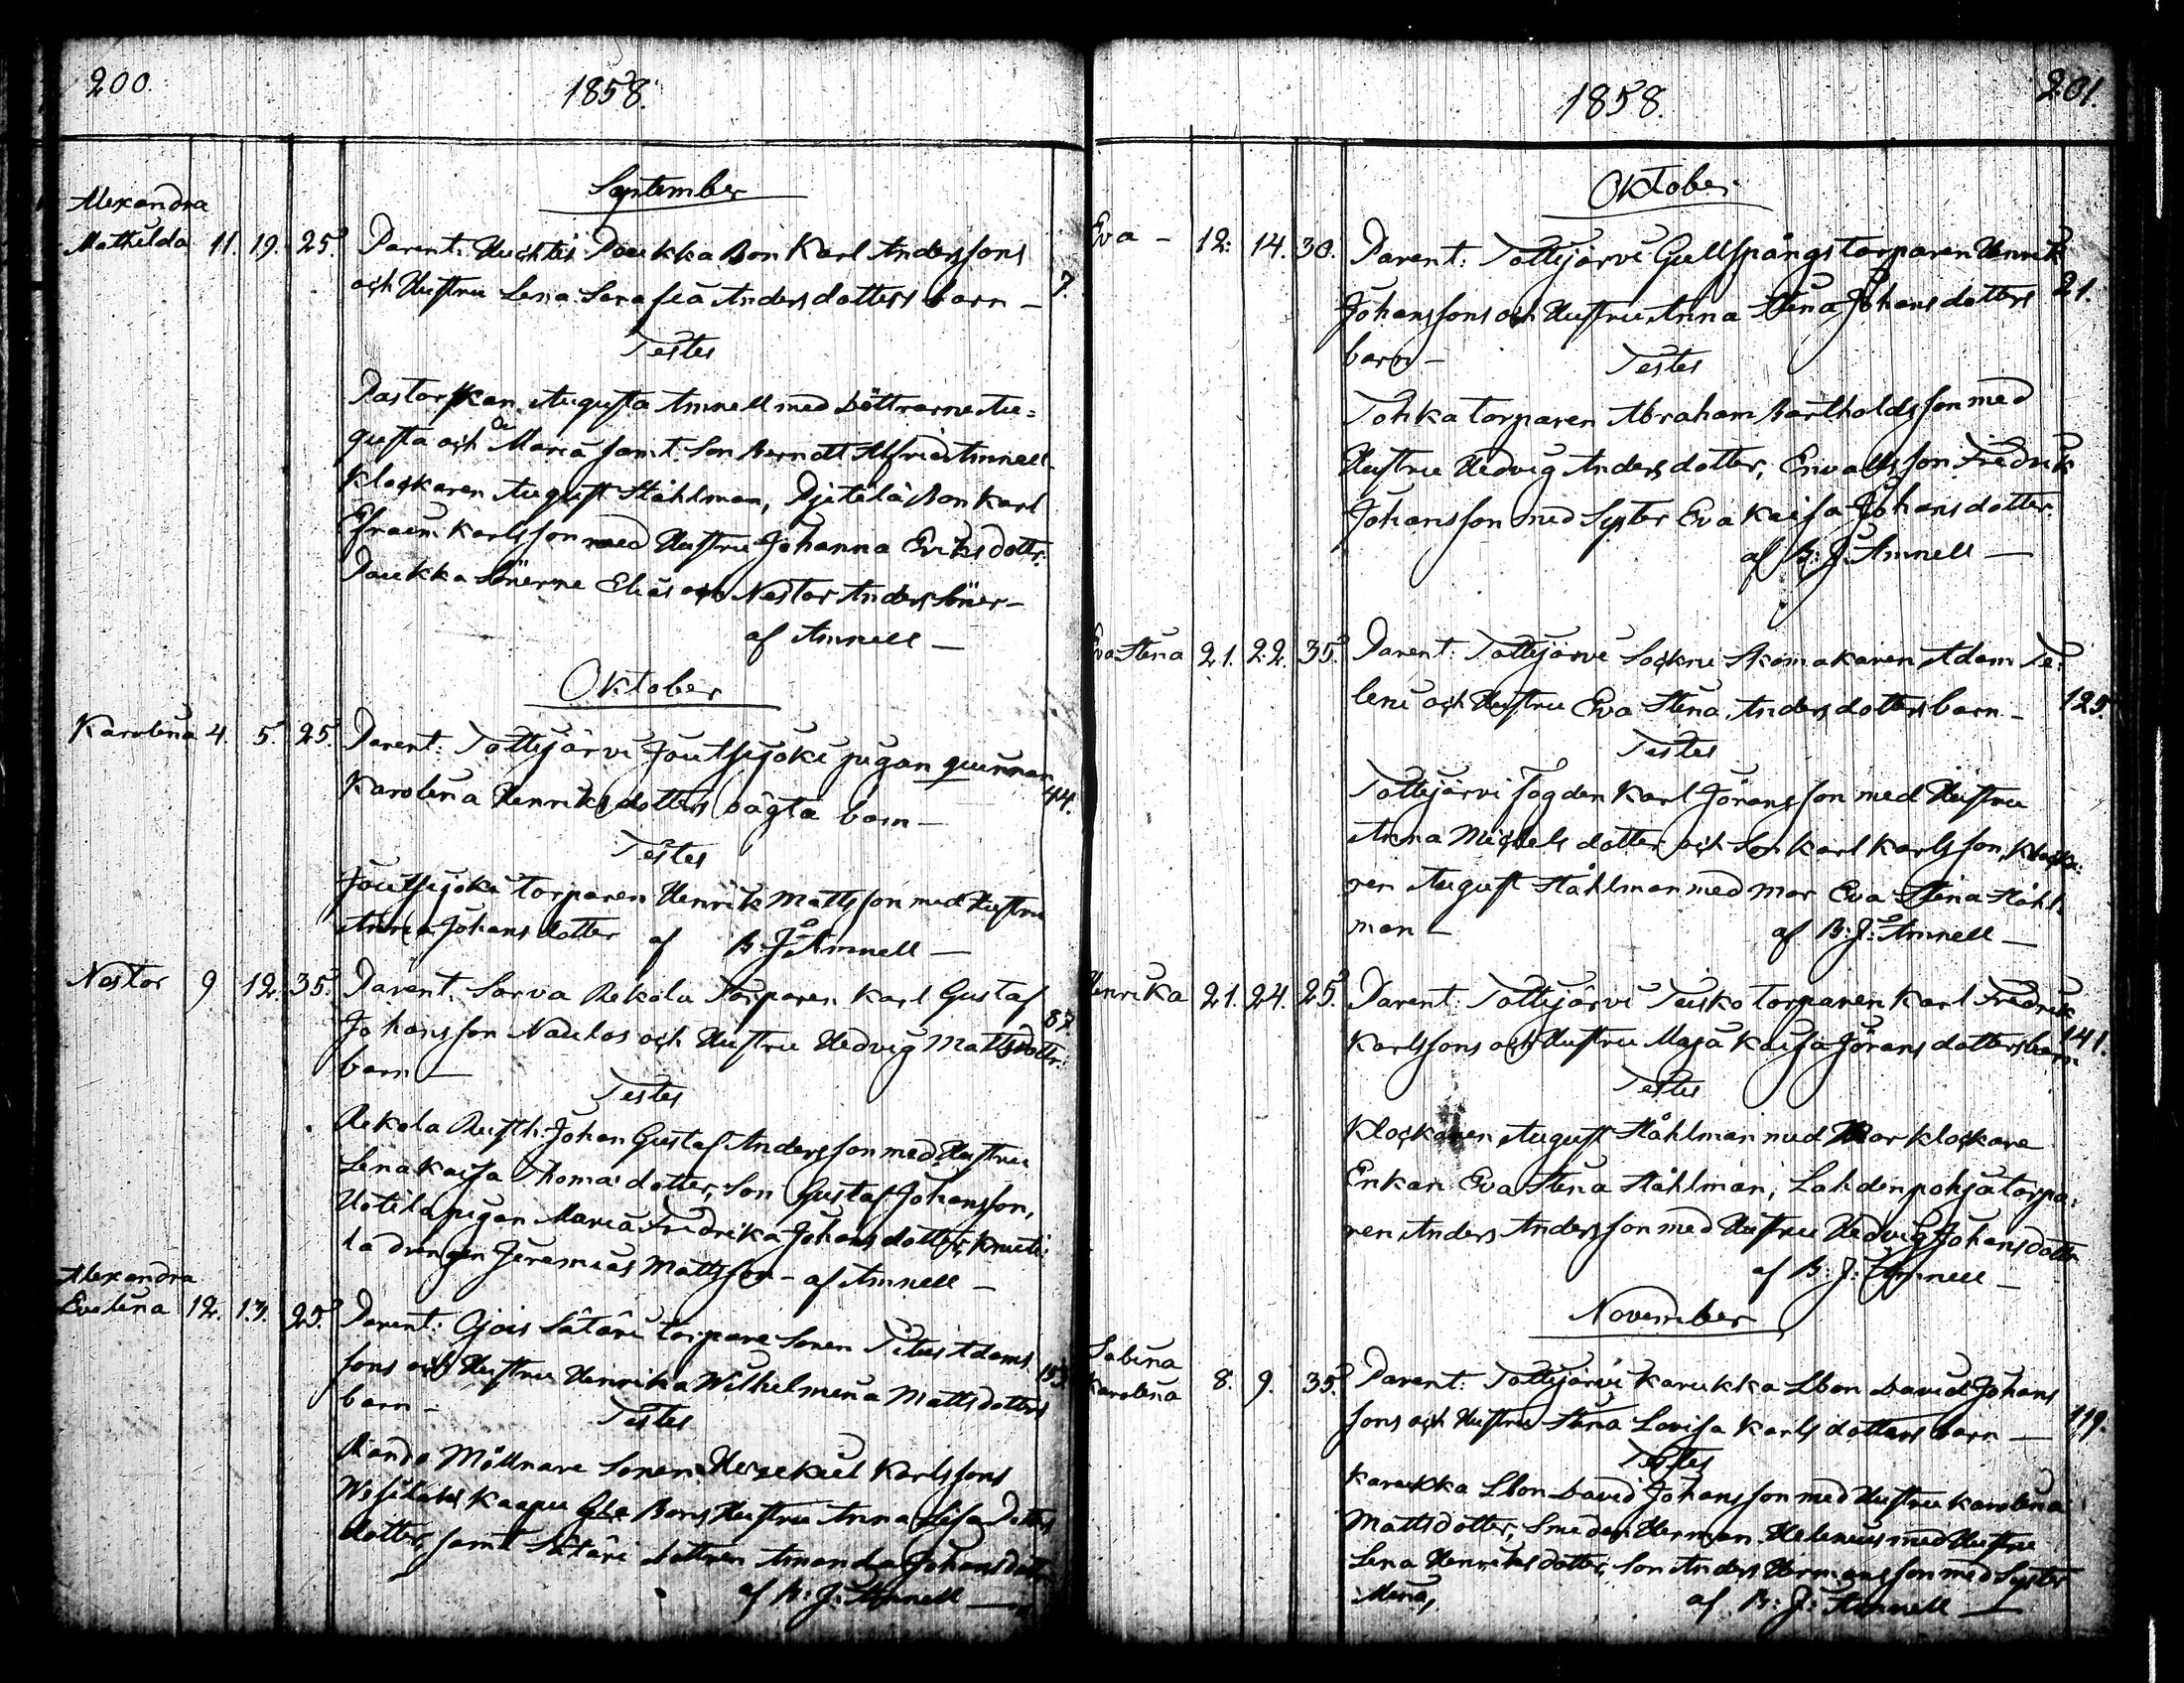 200.
1858.
September
Alexandra
Mathilda 11. 19. 25. Parent: Huchtis Paukka Bon Karl Anderssons
och Hustru Lena Serafia Andersdotters barn — 7.
Testes
Pastorskan Augusta Amnell med Döttrarne Au=
gusta och Maria samt Son Berndt Alfrid Amnell
Klockaren August Ståhlman, Pjetilä Bon Karl
Efraim Karlsson med Hustru Johanna Eriksdottr:
Paukka Sönerne Elias och Nestor Anderssöner —
af Amnell —
Oktober
Karolina 4. 5. 25. Parent: Tottijärvi Joutsijoki pigan qvinnan
Karolina Henriksdotters oägta barn — 44.
Testes
Joutsijoki torparen Henrik Mattsson med Hustru
Anna Johansdotter af B: J: Amnell —
Nestor 9 12. 35. Parent: Sarva Rekola Torparen Karl Gustaf
Johansson Naulos och Hustru Hedvig Mattsdottr: 87.
barn —
Testes
Rekola Rusth: Johan Gustaf Andersson med Hustru
Lena Kaisa Thomasdotter, Son Gustaf Johansson,
Uotila pigan Maria Fredrika Johansdotter, Knuti:
la drengen Jeremias Mattsson — af Amnell —
Alexandra
Evelina 12. 13. 25. Parent: Ojois Säteri torpare Sonen Titus Adams
sons och Hustru Henrika Wilhelmina Mattsdotters 153.
barn —
Testes
Mölnare Sonen Hesekiel Karlssons
Kaapu Bons Hustru Anna Lisa
dotter, samt Säteri dottren Amanda Johansdottr
af B: J: Amnell —
201.
1858.
Oktober
Eva — 12. 14. 30. Parent: Tottijärvi Gullspångs torparen Henrik
Johanssons och Hustru Anna Stena Johansdotters 21.
barn —
Testes
Tohka torparen Abraham Bartholdsson med
Hustru Hedvig Andersdotter, Envalls son Fredrik
Johansson med Syster Eva Kaisa Johansdotter.
af B: J: Amnell —
Eva Stena 21. 22. 35. Parent: Tottijärvi Sockne Skomakaren Adam Te:
leni och Hustru Eva Stena Andersdotters barn — 125.
Testes
Tottijärvi fogden Karl Jöransson med Hustru
Anna Michelsdotter och Son Karl Karlsson, Klocka:
ren August Ståhlman med mor Eva Stena Ståhl:
man — af B: J: Amnell —
Henrika 21. 24. 25. Parent: Tottijärvi Teisko torparen Karl Fredrik
Karlssons och Hustru Maja Kaisa Jöransdotters barn 141.
Testes
Klockaren August Ståhlman med Mor Klockare
Enkan Eva Stena Ståhlman, Lahdenpohja torpa:
ren Anders Andersson med Hustru Hedvig Johansdotter
af B: J: Amnell —
November
Sabina
Karolina 8. 9. 35. Parent: Tottijärvi Karukka Lbon David Johans
sons och Hustru Stina Lovisa Karlsdotters barn — 119.
Testes
Karukka Lbon David Johansson med Hustru Karolina
Mattsdotter, Smeden Herman Helenius med Hustru
Lena Henriksdotter, Son Anders Hermansson med Syster
Mina, af B: J: Amnell —